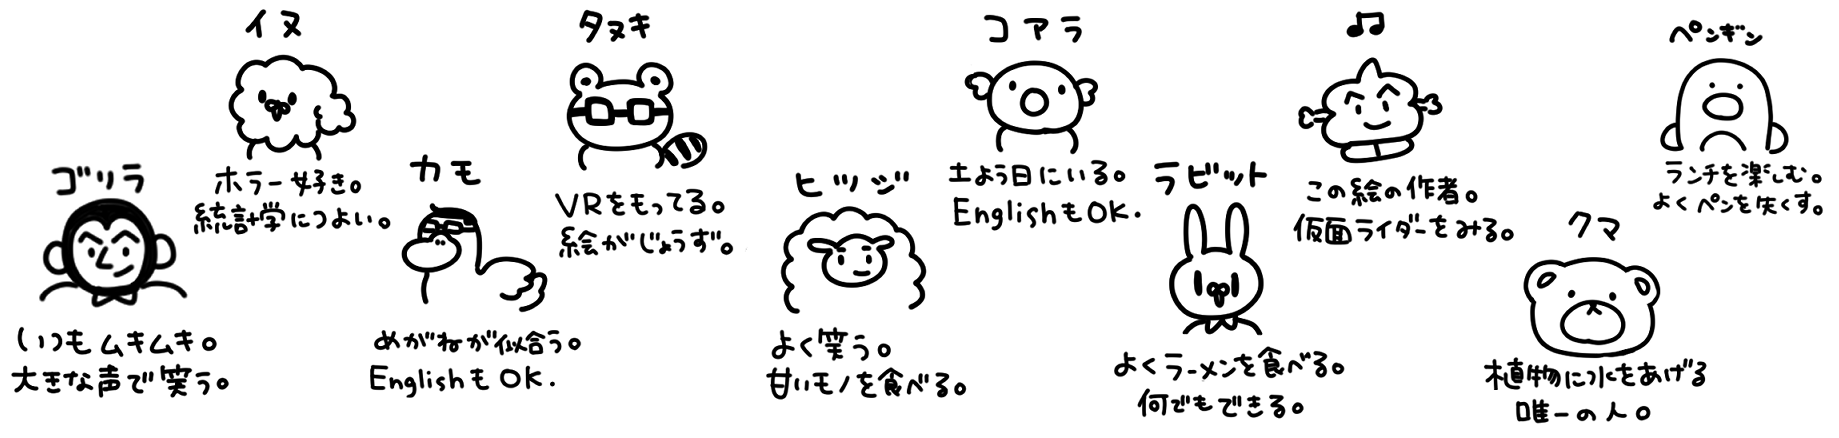 ゴリラ
いつもムキムキ。
大きな声で笑う。
イヌ
ホラー好き。
統計学につよい。
カモ
めがねが似合う。
EnglishもOK.
タヌキ
VRをもってる。
絵がじょうず。
ヒツジ
よく笑う。
甘いモノを食べる。
コアラ
土よう日にいる。
EnglishもOK.
ラビット
よくラーメンを食べる。
何でもできる。
♫
この絵の作者。
仮面ライダーをみる。
クマ
植物に水をあげる
唯一の人。
ペンギン
ランチを楽しむ。
よくペンを失くす。